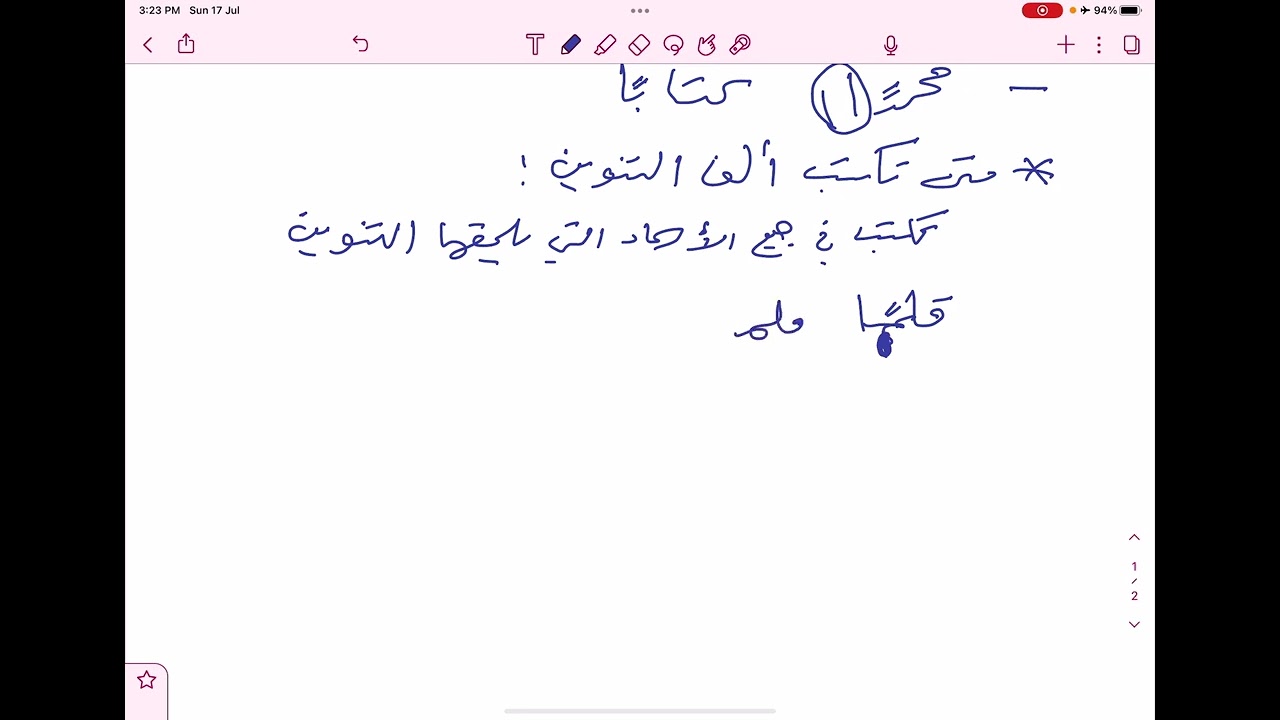 3:23 PM Sun 17 Jul
94%
كتابًا
* متى تكتب ألف التنوين :
تكتب في جميع الأسماء التي يلحقها التنوين
قلمًا قلم
1
/
2